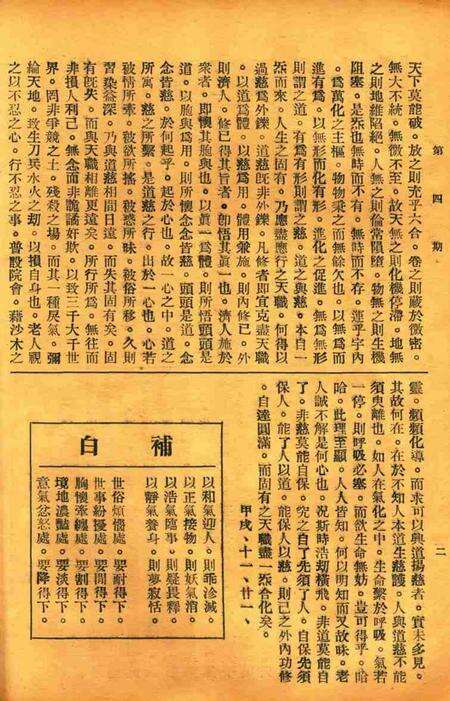 第四期
二
天下莫能破。放之則充乎六合。卷之則藏於微密。
無大不統。無微不至。故天無之則化機停滯。地無
之則地維陷絕。人無之則倫常隕墮。物無之則生機
阻塞。是炁也無時而不有。無時而不存。運乎宇內
。為萬化之主樞。物物秉之而無餘欠也。以無為而
進有為。以無形而化有形。進化之促進。無為無形
則謂之道。有為有形則謂之慈。道之與慈。本自一
炁而來。人生之固有。乃應盡應行之天職。何得以
過慈為外鑠。道慈既非外鑠。凡修者即宜克盡天職
。以道為體。以慈為用。體用兼施。則內修已。外
則濟人。修已得其旨者。卽悟其眞一也。濟人施於
衆者。即懷其胞與也。以眞一為體。則所悟頭頭是
道。以胞與為用。則所懷念念皆慈。頭頭是道。念
念皆慈。於何起乎。起於心也。故一心之中。道之
所寓。慈之所繫。是道慈之行。出於一心也。心若
被情所牽。被欲所搖。被惑所昧。被俗所移。久則
習染益深。乃與道慈相間日遠。而失其固有矣。固
有既失。而與天職相離更遠矣。所行所為。無往而
非損人利己。無念而非詭譎奸欺。以致三千大千世
界。罔非爭競之土。殘殺之場。而其一種戾氣。彌
綸天地。致生刀兵水火之劫。以損自身也。老人視
之以不忍之心。行不忍之事。普設院會。藉沙木之
靈。頻頻化導。而求可以與道揚慈者。實未多見。
其故何在。在於不知人本道生慈護。人與道慈不能
須臾離也。如人在氣化之中。生命繫於呼吸。氣若
一停。則呼吸必塞。而欲生命無妨。豈可得乎。哈
哈。此理至顯。人人皆知。何以明知而又故昧。老
人誠不解是何心也。况斯時浩劫橫飛。非道莫能自
了。非慈莫能自保。究之自了先須了人。自保先須
保人。能了人以道。能保人以慈。則己之外內功修
。自達圓滿。而固有之天職盡一炁合化矣。
甲戌、十一、廿一、
補白
以和氣迎人。則乖沴滅。
以正氣接物。則妖氣消。
以浩氣臨事。則疑畏釋。
以靜氣養身。則夢寂恬。
世俗煩惱處。要耐得下。
世事紛擾處。要閒得下。
胸懷牽纏處。要割得下。
境地濃豔處。要淡得下。
意氣忿怒處。要降得下。